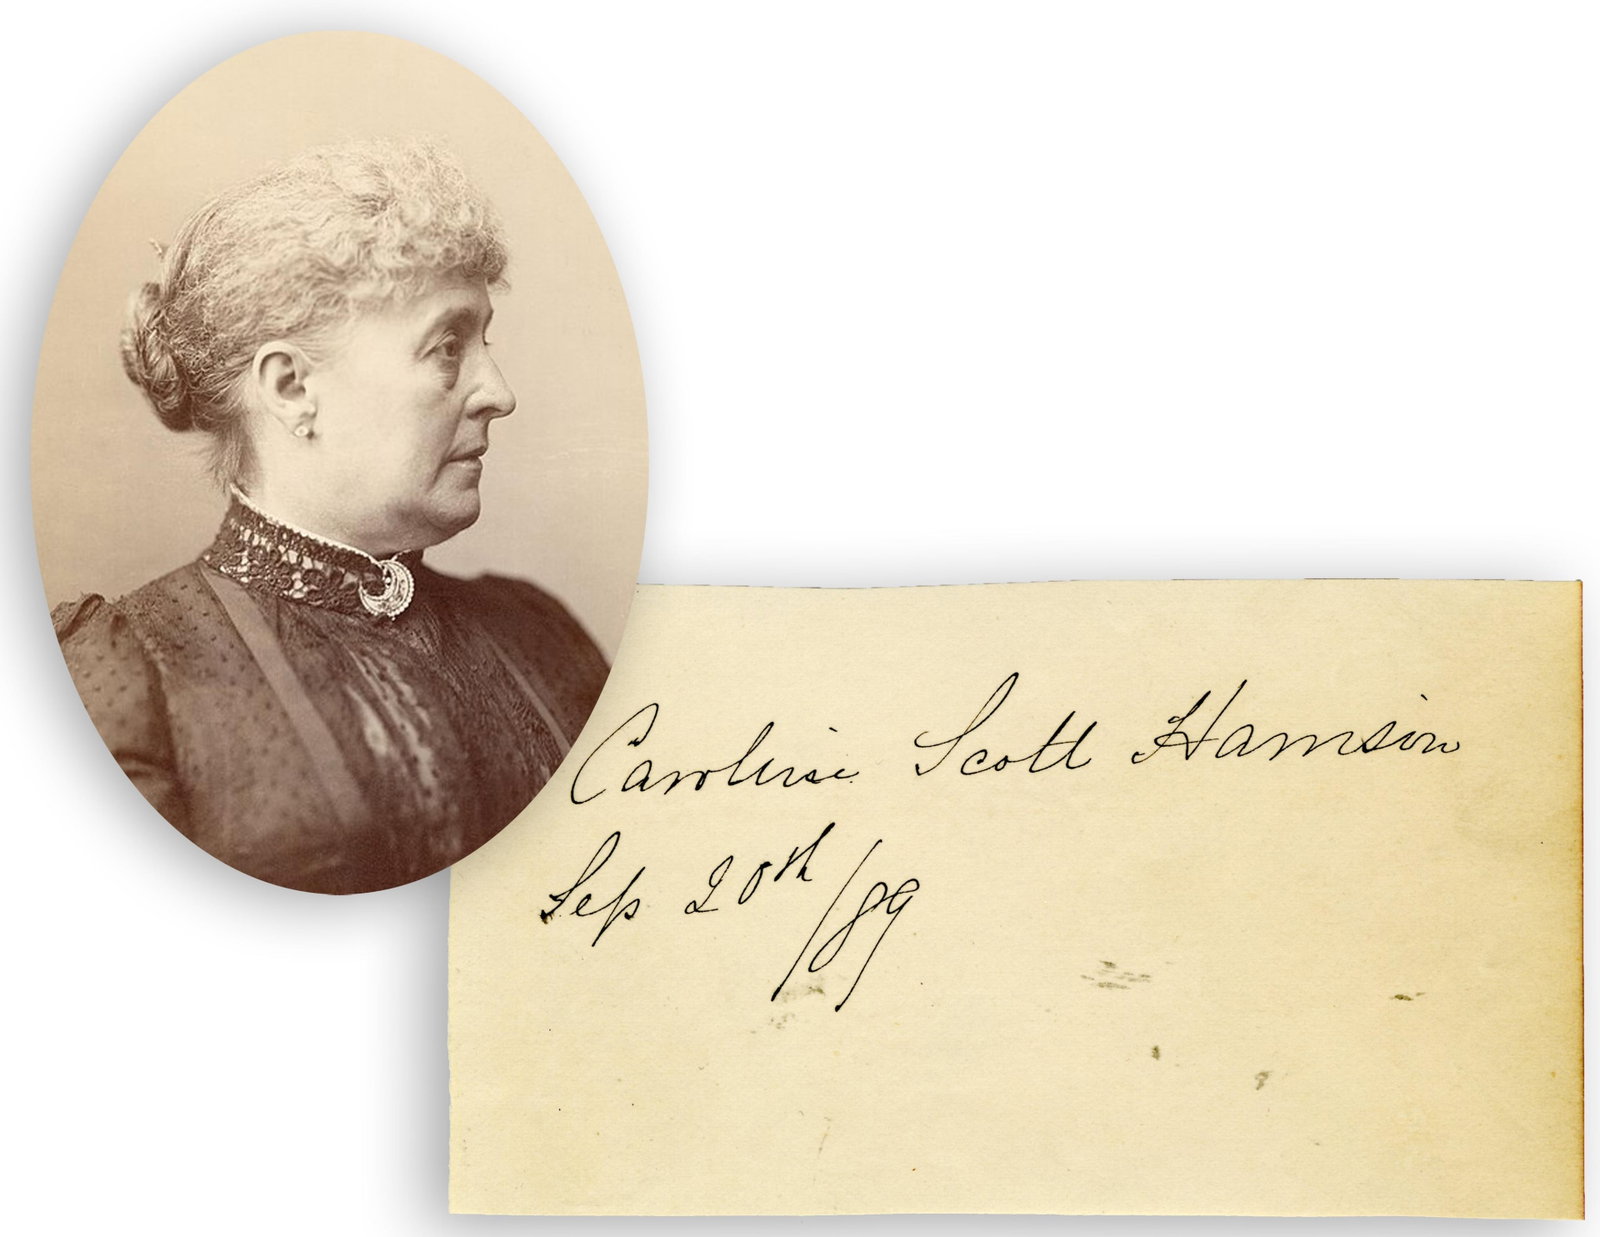 Caroline Scott Harrison
Sep 20th/89